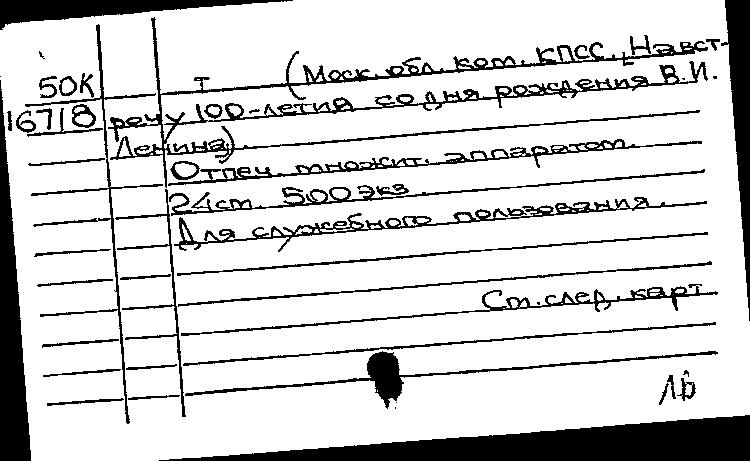 50К т (Моск. обл. ком. КПСС. Навст-
16718 речу 100-летия со дня рождения В.И.
Ленина).
Отпеч. множит. аппаратом.
24ст. 500 экз.
Для служебного пользования.
См. след. карт
1б